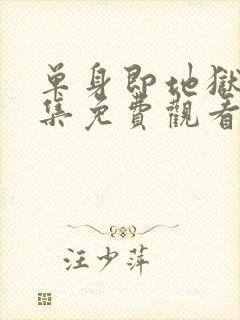 單身即地獄
集免費觀看
汪少萍